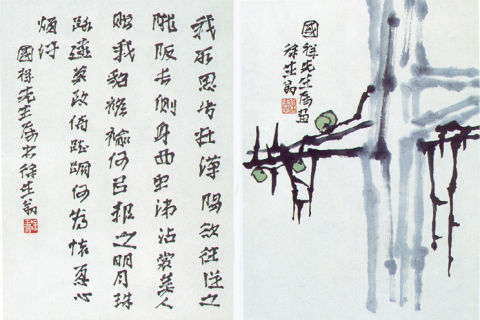 我所思兮在漢陽欲往從之
隴阪長側身西望涕沾裳美人
贈我貂襜褕何以報之明月珠
路遠莫致倚踟躕何為懷憂心
煩紆
國祥先生屬書徐生翁
國祥先生屬畫
徐生翁